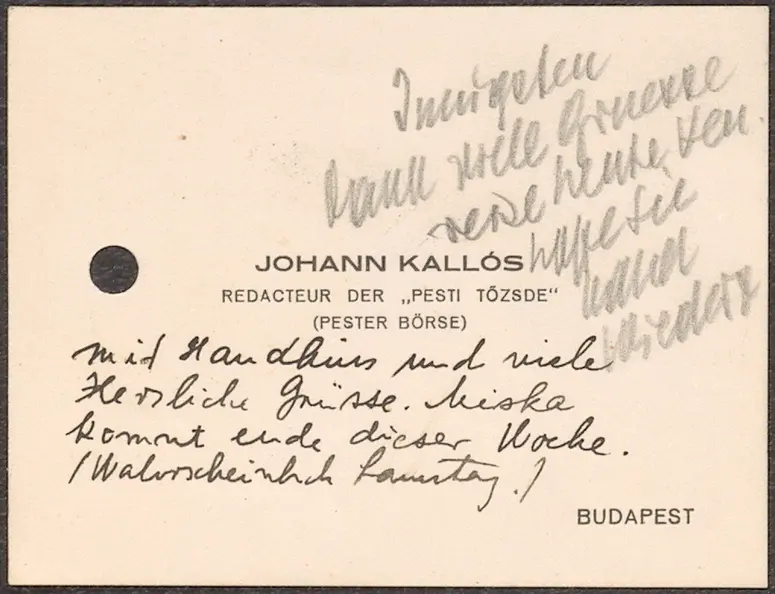 Innigsten
Dank viele Gruesse
reise heute
hoffe Sie
bald
JOHANN KALLÓS
REDACTEUR DER „PESTI TŐZSDE“
(PESTER BÖRSE)
mit Handkuss und viele
Herzliche Grüsse. Miska
kommt ende dieser Woche.
/Wahrscheinlich Samstag./
BUDAPEST